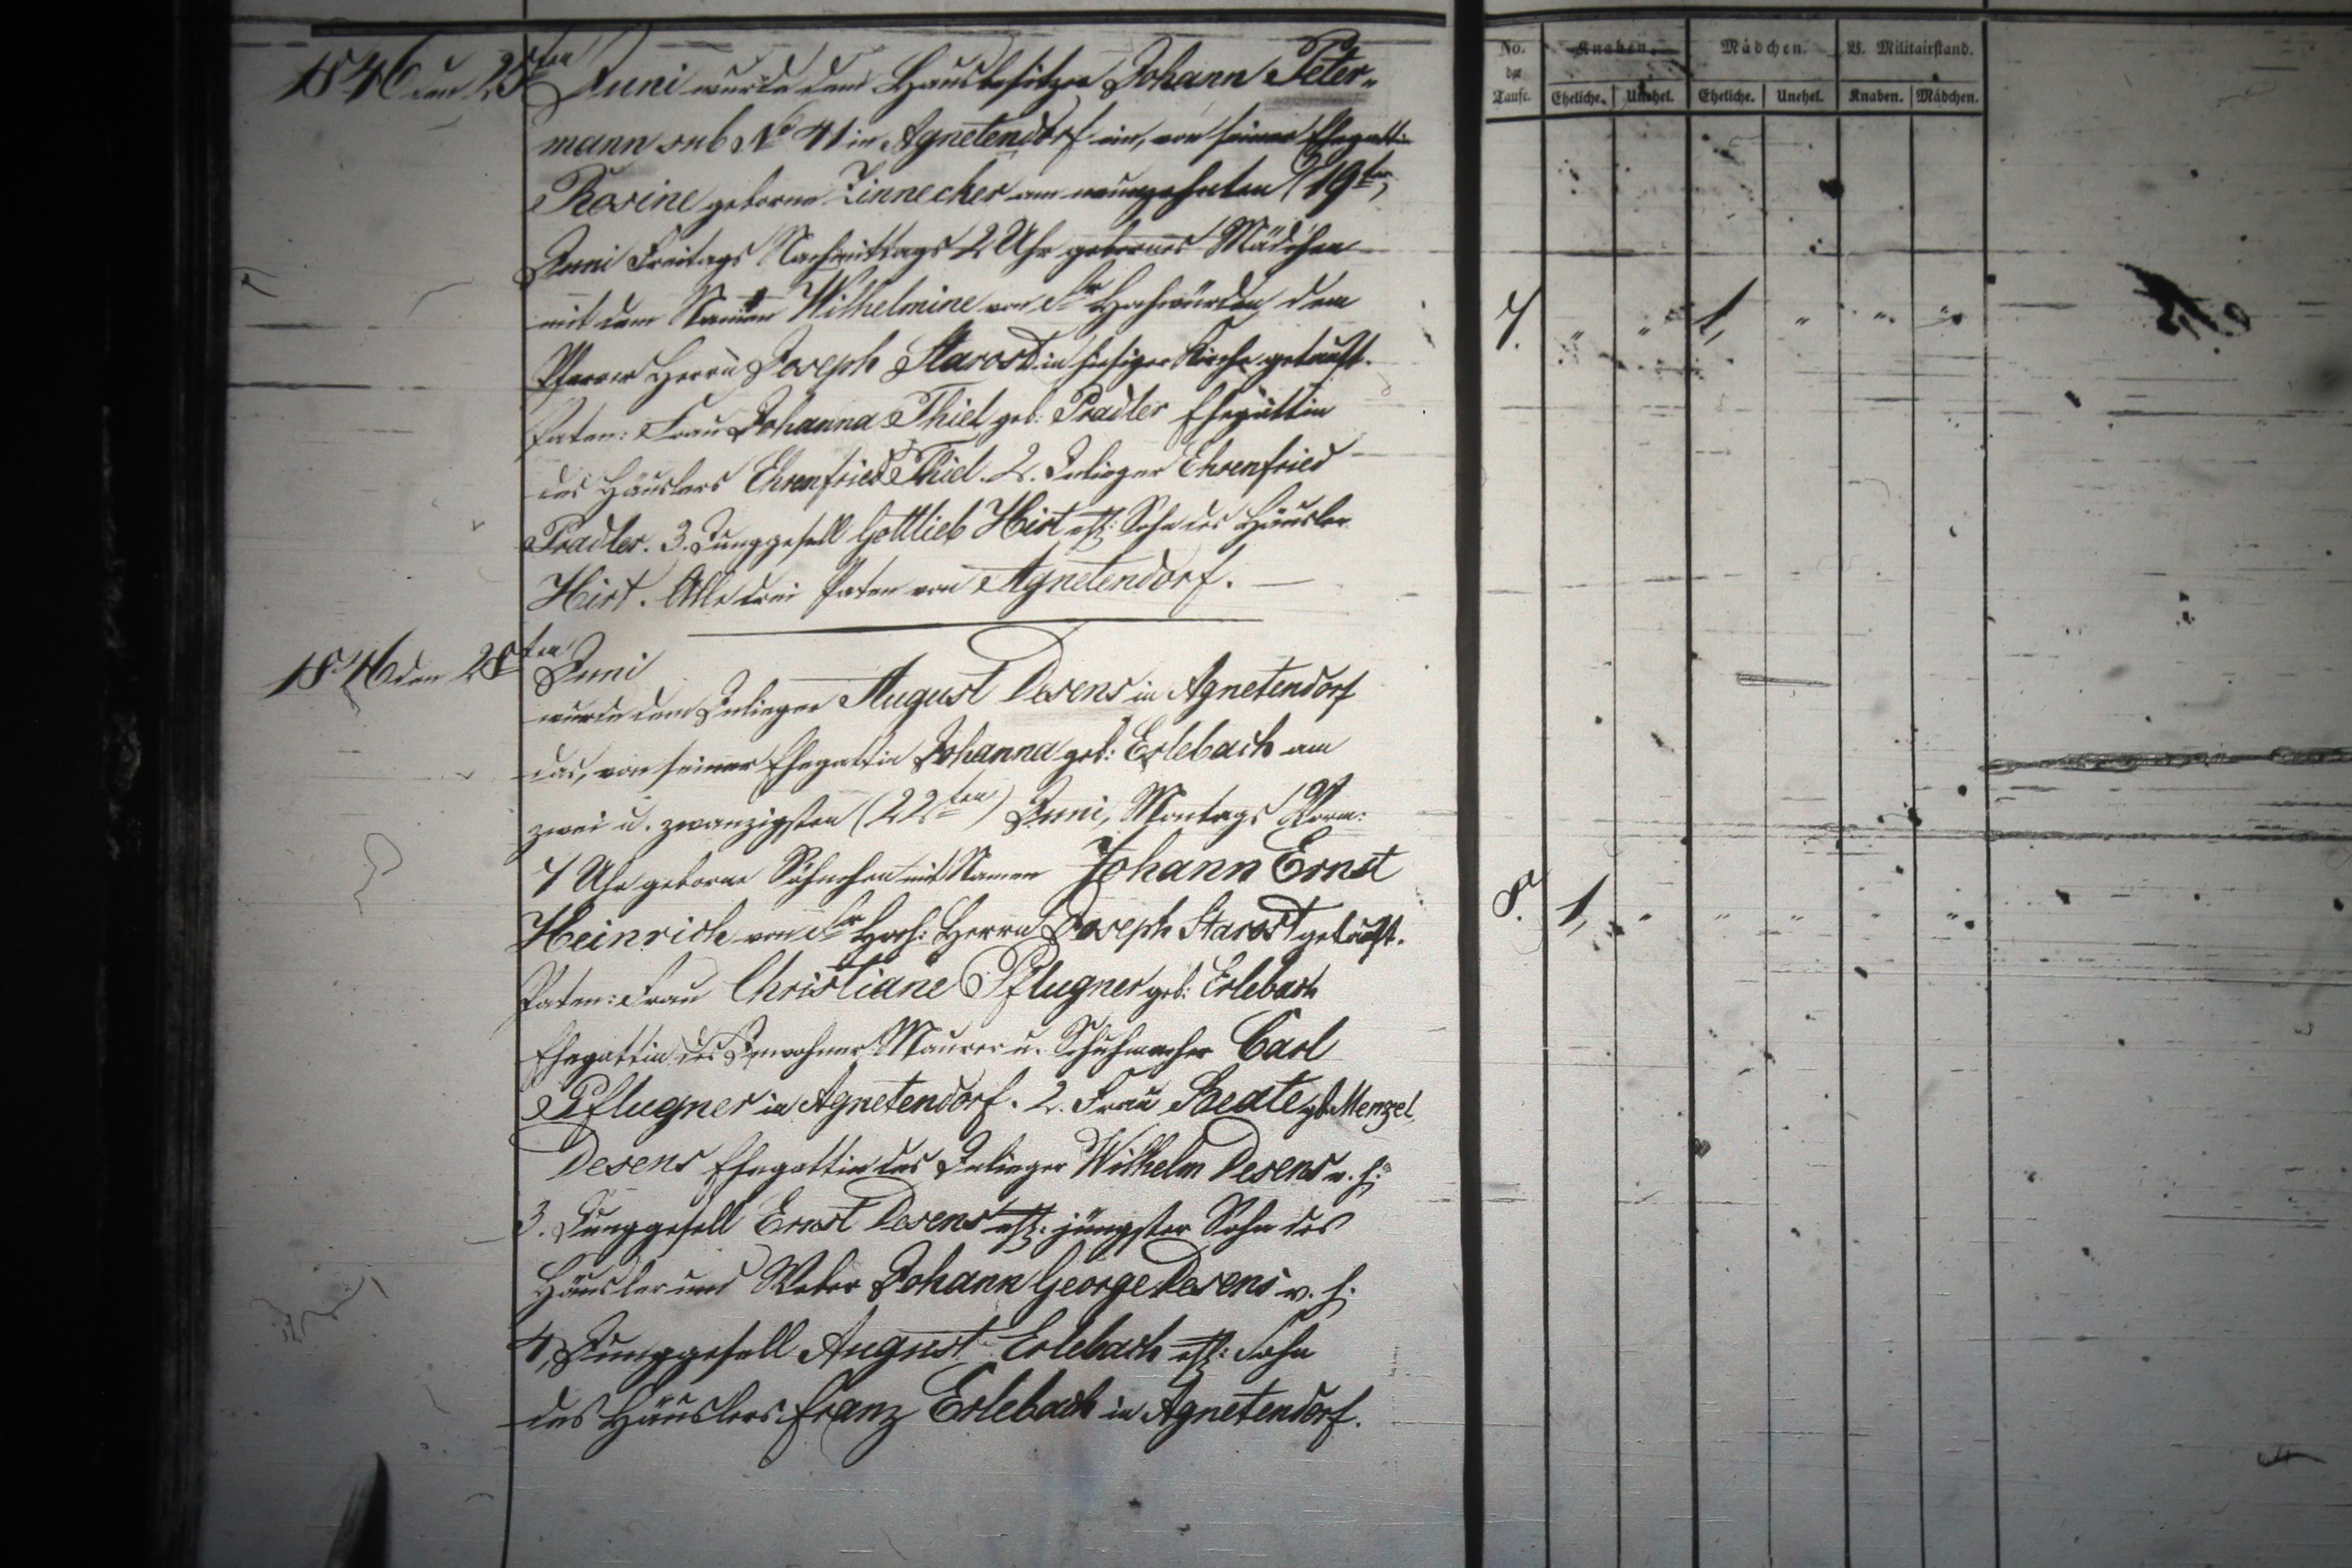 No. der Taufe. Knaben. Mädchen. B. Militairstand.
Eheliche. Unehel. Eheliche. Unehel. Knaben. Mädchen.
1846 den 25ten Juni wurde dem Hausbesitzer Johann Peter-
mann sub No 41 in Agnetendorf ein, von seiner Ehegatti
Rosine geborne Zinnecker am neunzehnten (19ten)
Juni Freitags Nachmittags 2 Uhr gebornes Mädchen
mit dem Namen Wilhelmine von Sr Hochwürden dem
Pfarrer Herrn Joseph Starost in hiesiger Kirche getauft.
7. " " 1, " " "
Paten: Frau Johanna Thiel geb: Pradler Ehegattin
des Häuslers Ehrenfried Thiel. 2. Inlieger Ehrenfried
Pradler. 3. Junggesell Gottlieb Hirt ehl: Sohn des Häusler
Hirt. Alle drei Paten von Agnetendorf.
1846 den 28ten Juni
wurde dem Inlieger August Desens in Agnetendorf
das, von seiner Ehegattin Johanna geb: Erlebach am
zwei u. zwanzigsten (22ten) Juni, Montags Vorm:
7 Uhr geborne Söhnchen mit Namen Johann Ernst
Heinrich von Sr Hoch: Herrn Joseph Starost getauft.
8. 1, " " " " "
Paten: Frau Christiane Pflugner geb: Erlebach
Ehegattin des Inwohner Maurer u. Schuhmacher Carl
Pflugner in Agnetendorf. 2. Frau Beate gb Menzel,
Desens Ehegattin des Inlieger Wilhelm Desens v. h:
3. Junggesell Ernst Desens ehl: jüngster Sohn des
Häusler und Weber Johann George Desens v. h.
4, Junggesell August Erlebach ehl: Sohn
des Häuslers Franz Erlebach in Agnetendorf.